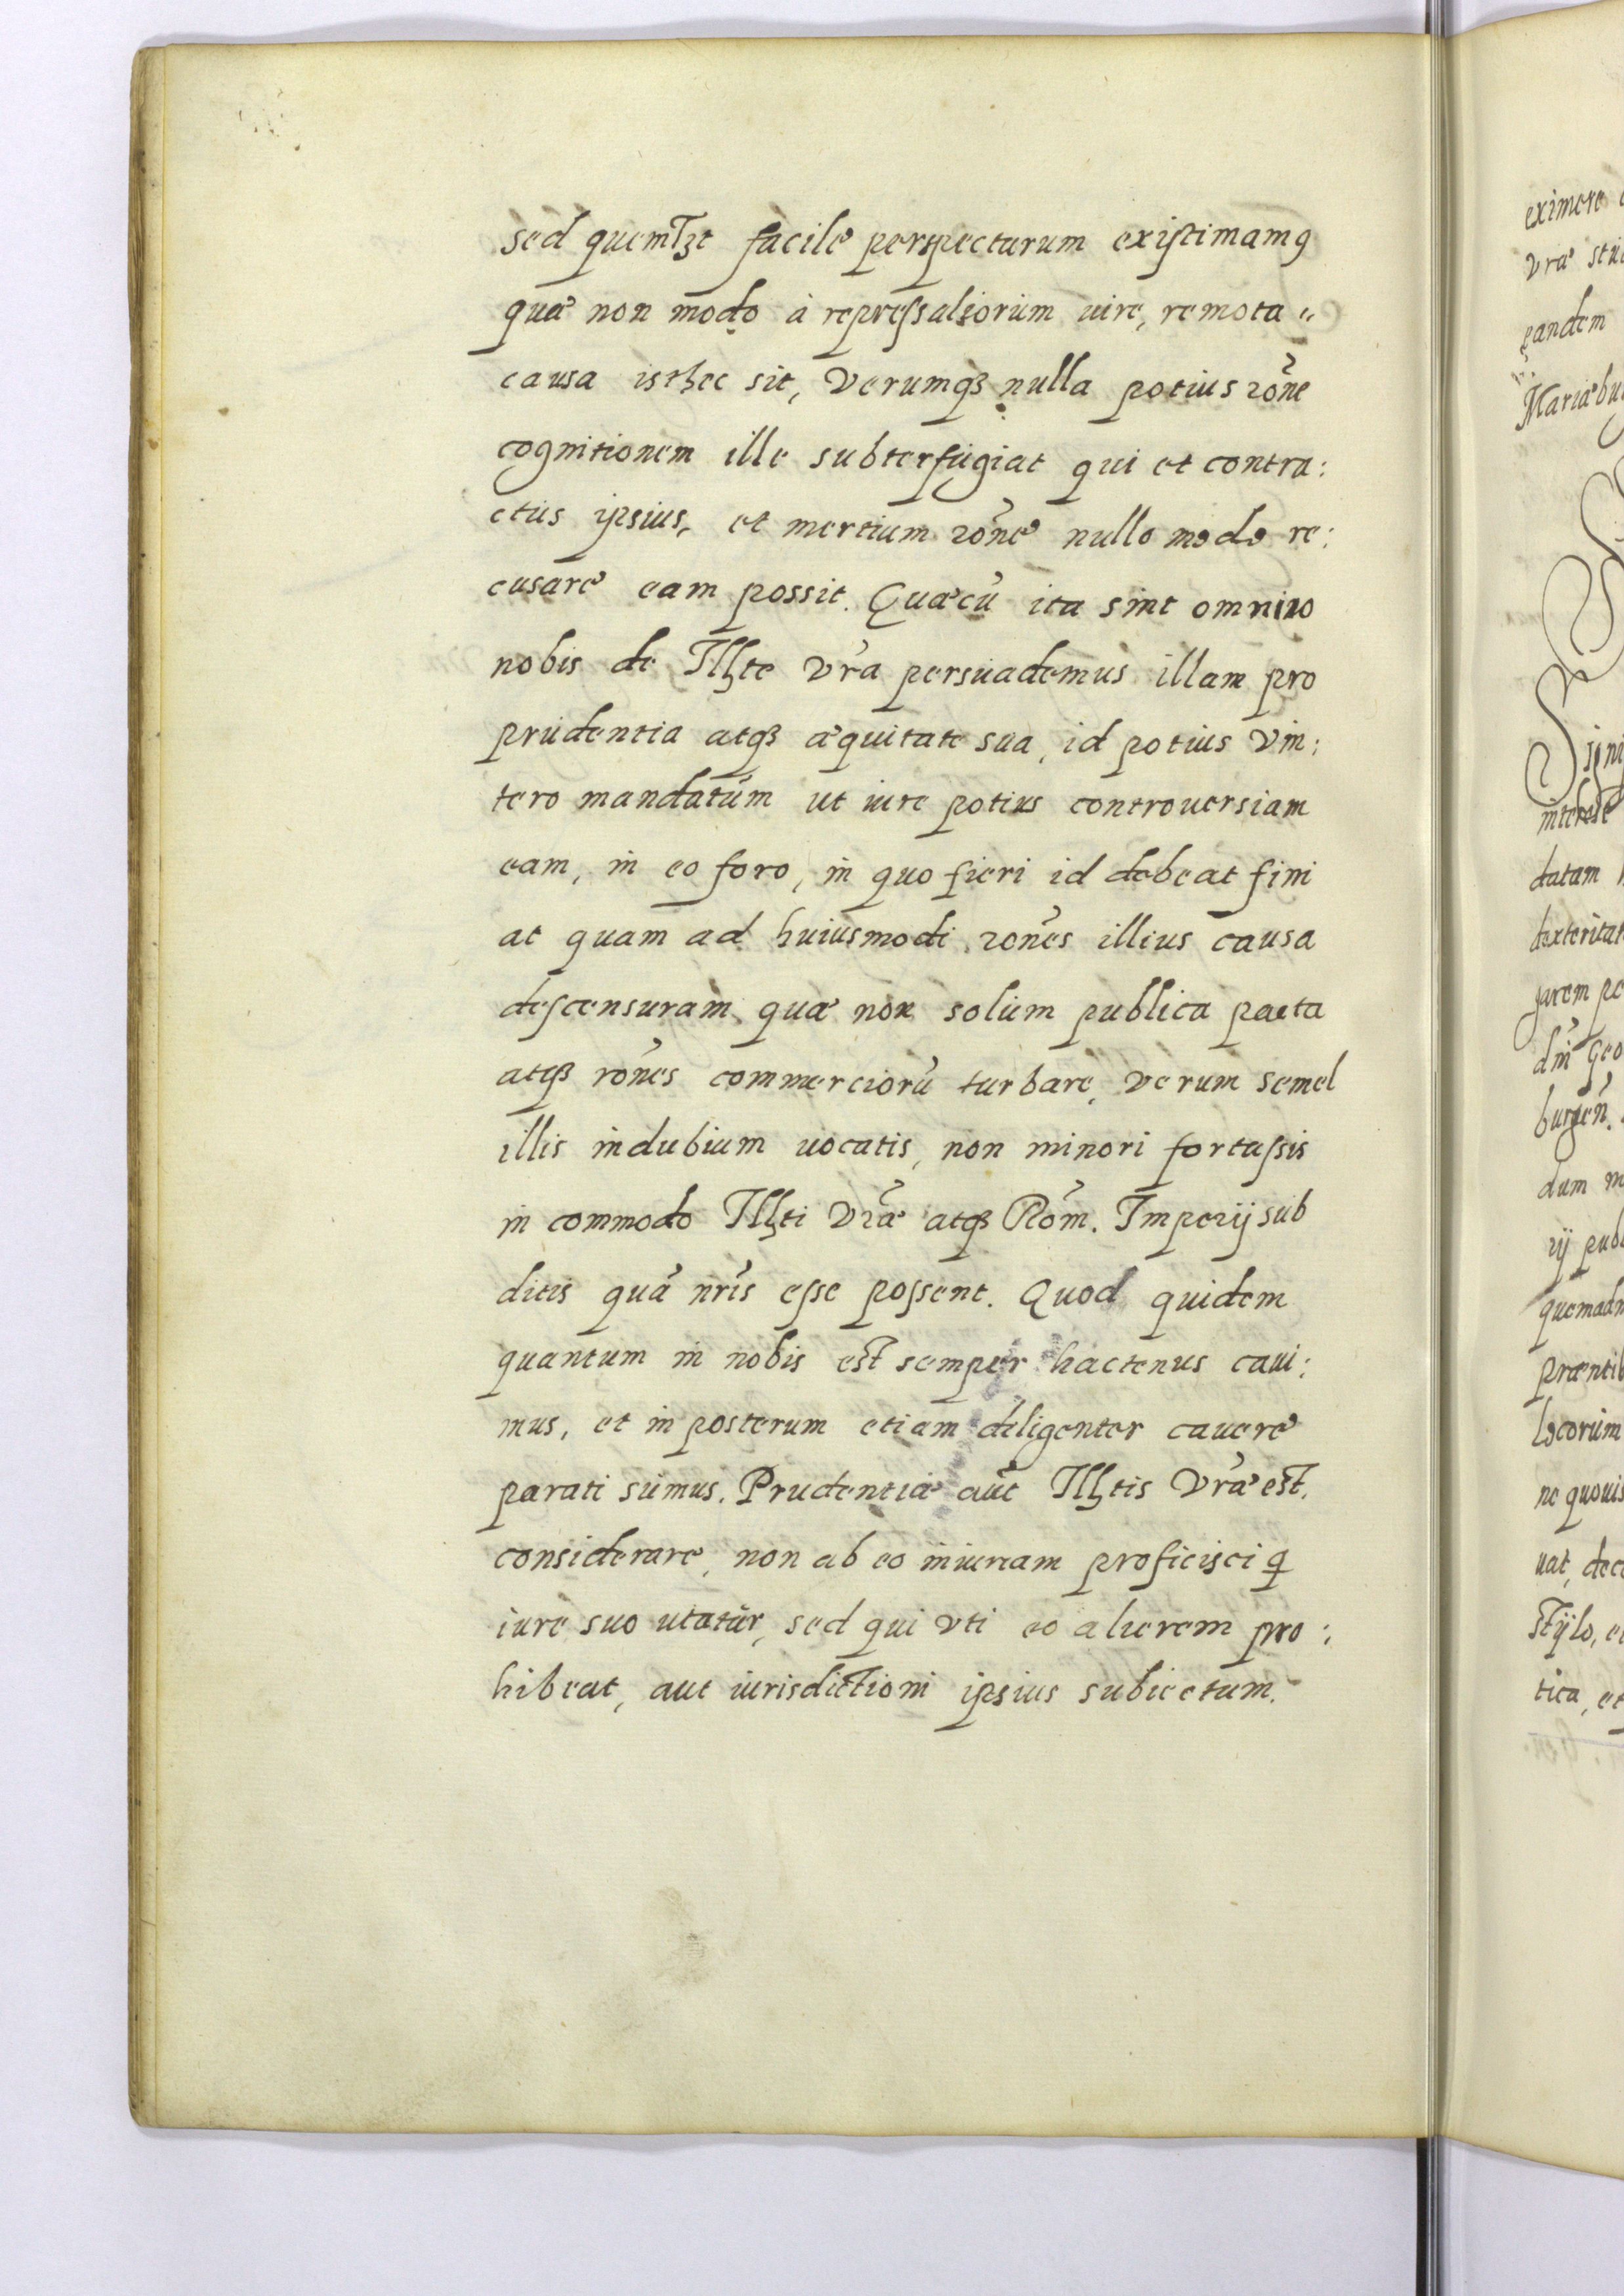 sed quemlꝫt facile perspecturum existimamꝰ
quæ non modo à repressaliorum iure, remota
causa isthec sit, verumqꝫ nulla potius rōne
cognitionem ille subterfugiat qui et contra:
ctus ipsius, et mertium rōne nullo modo re:
cusare eam possit. Quæ cū ita sint omnino
nobis de Illꝫte vrā persuademus illam pro
prudentia atqꝫ æquitate sua, id potius vin:
tero mandatum ut iure potius controuersiam
eam, in eo foro, in quo fieri id debeat fini
at quam ad huiusmodi rōnes illius causa
descensuram quæ non solum publica pacta
atqꝫ rōnes commerciorū turbare, verum semel
illis in dubium uocatis, non minori fortassis
in commodo Illꝫti vræ atqꝫ Rōm. Imperij sub
ditis quā nrīs esse possent. Quod quidem
quantum in nobis est semper hactenus caui:
mus, et in posterum etiam diligenter cauere
parati sumus. Prudentiæ aūt Illꝫtis vræ est,
considerare, non ab eo iniuriam proficisci q
iure suo utatur, sed qui vti eo alterem pro:
hibeat, aut iurisdictioni ipsius subiectum.
eximere
vræ stu
eandem
Mariæbu
Signi
interesse
datam
dexteritat
garem po
dnī Geo
burgēn.
dum m
rij publ
quemadm
præntib
locorum
ne quouis
uat, dece
stijlo, e
tica, et